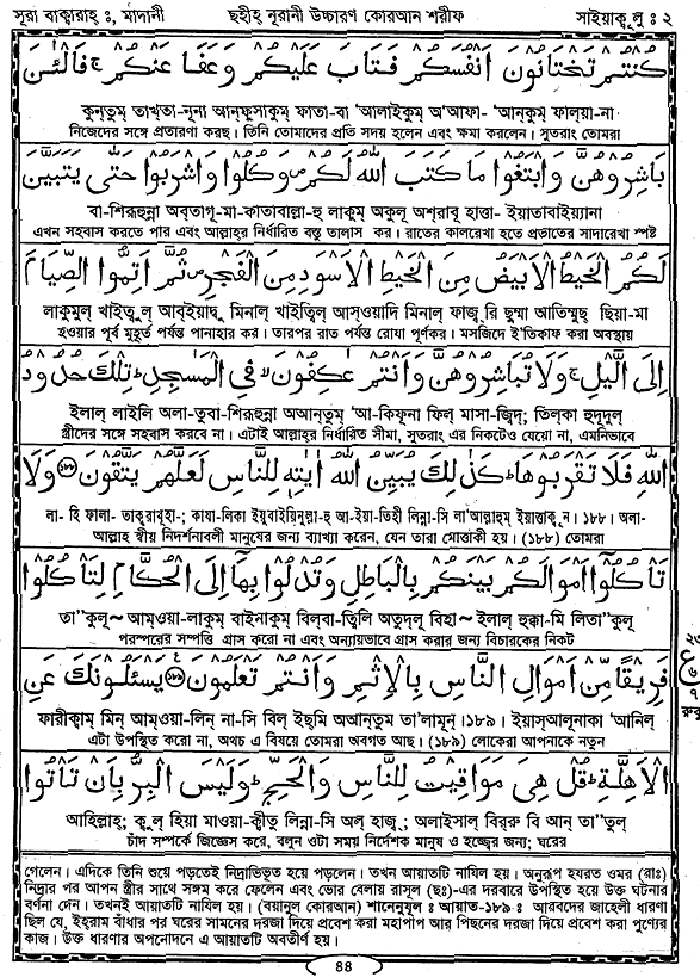 সূরা বাক্বারাহ্ ঃ, মাদানী ছহীহ্ নূরানী উচ্চারণ কোরআন শরীফ সাইয়াকূলু ঃ ২
كُنْتُمْ تَخْتَانُونَ اَنْفُسَكُمْ فَتَابَ عَلَيْكُمْ وَعَفَا عَنْكُمْ ۚ فَالْـٰٔنَ
কুন্তুম্ তাখ্তা-নূনা আন্ফুসাকুম্ ফাতা-বা 'আলাইকুম্ অ'আফা- 'আন্কুম্ ফাল্য়া-না
নিজেদের সঙ্গে প্রতারণা করছ। তিনি তোমাদের প্রতি সদয় হলেন এবং ক্ষমা করলেন। সুতরাং তোমরা
بَاشِرُوْهُنَّ وَابْتَغُوْا مَا كَتَبَ اللّٰهُ لَكُمْ ۪ وَكُلُوْا وَاشْرَبُوْا حَتّٰى يَتَبَيَّنَ
বা-শিরূহুন্না অব্তাগূ-মা-কাতাবাল্লা-হু লাকুম্ অকুলূ অশ্রাবূ হাত্তা- ইয়াতাবাইয়্যানা
এখন সহবাস করতে পার এবং আল্লাহর নির্ধারিত বস্তু তালাস কর। রাতের কালরেখা হতে প্রভাতের সাদারেখা স্পষ্ট
لَكُمُ الْخَيْطُ الْاَبْيَضُ مِنَ الْخَيْطِ الْاَسْوَدِ مِنَ الْفَجْرِ ۪ ثُمَّ اَتِمُّوا الصِّيَامَ
লাকুমুল্ খাইত্বুল্ আব্ইয়াদ্বু মিনাল্ খাইত্বিল্ আস্ওয়াদি মিনাল্ ফাজ্ব্ রি ছুম্মা আতিম্মুছ্ ছিয়া-মা
হওয়ার পূর্ব মুহূর্ত পর্যন্ত পানাহার কর। তারপর রাত পর্যন্ত রোযা পূর্ণকর। মসজিদে ই'তিকাফ করা অবস্থায়
اِلَى الَّيْلِ ۚ وَلَا تُبَاشِرُوْهُنَّ وَاَنْتُمْ عٰكِفُوْنَ ۙ فِى الْمَسٰجِدِ ؕ تِلْكَ حُدُوْدُ
ইলাল্ লাইলি অলা-তুবা-শিরূহুন্না অআন্তুম্ 'আ-কিফূনা ফিল্ মাসা-জ্বিদ্; তিল্কা হুদূদুল্
স্ত্রীদের সঙ্গে সহবাস করবে না। এটাই আল্লাহর নির্ধারিত সীমা, সুতরাং এর নিকটেও যেয়ো না, এমনিভাবে
اللّٰهِ فَلَا تَقْرَبُوْهَا ؕ كَذٰلِكَ يُبَيِّنُ اللّٰهُ اٰيٰتِهٖ لِلنَّاسِ لَعَلَّهُمْ يَتَّقُوْنَ ﴿۱۸۷﴾ وَلَا
লা- হি ফালা- তাক্বরাবূহা-; কাযা-লিকা ইয়ুবাইয়িনুল্লা-হু আ-ইয়া-তিহী লিন্না-সি লা'আল্লাহুম্ ইয়াত্তাক্বূন। ১৮৮। অলা-
আল্লাহ স্বীয় নিদর্শনাবলী মানুষের জন্য ব্যাখ্যা করেন, যেন তারা মোত্তাকী হয়। (১৮৮) তোমরা
تَاْكُلُوْٓا اَمْوَالَكُمْ بَيْنَكُمْ بِالْبَاطِلِ وَتُدْلُوْا بِهَآ اِلَى الْحُكَّامِ لِتَاْكُلُوْا
তা"কুলূ~ আম্ওয়া-লাকুম্ বাইনাকুম্ বিল্বা-ত্বিলি অতুদ্লূ বিহা~ ইলাল্ হুক্কা-মি লিতা"কুলূ
পরস্পরের সম্পত্তি গ্রাস করো না এবং অন্যায়ভাবে গ্রাস করার জন্য বিচারকের নিকট
فَرِيْقًا مِّنْ اَمْوَالِ النَّاسِ بِالْاِثْمِ وَاَنْتُمْ تَعْلَمُوْنَ ﴿۱۸۸﴾ يَسْـَٔلُوْنَكَ عَنِ
ফারীক্বাম্ মিন্ আম্ওয়া-লিন্ না-সি বিল্ ইছ্মি অআন্তুম্ তা'লামূন্। ১৮৯। ইয়াস্আলূনাকা 'আনিল্
এটা উপস্থিত করো না, অথচ এ বিষয়ে তোমরা অবগত আছ। (১৮৯) লোকেরা আপনাকে নতুন
الْاَهِلَّةِ ؕ قُلْ هِىَ مَوَاقِيْتُ لِلنَّاسِ وَالْحَجِّ ؕ وَلَيْسَ الْبِرُّ بِاَنْ تَاْتُوا
আহিল্লাহ্; ক্বুল্ হিয়া মাওয়া-ক্বীতু লিন্না-সি অল্ হাজ্ব্; অলাইসাল্ বির্রু বি আন্ তা"তুল্
চাঁদ সম্পর্কে জিজ্ঞেস করে, বলুন ওটা সময় নির্দেশক মানুষ ও হজ্জের জন্য; ঘরের
গেলেন। এদিকে তিনি শুয়ে পড়তেই নিদ্রাভিভূত হয়ে পড়লেন। তখন আয়াতটি নাযিল হয়। অনুরূপ হযরত ওমর (রাঃ)
নিদ্রার পর আপন স্ত্রীর সাথে সঙ্গম করে ফেলেন এবং ভোর বেলায় রাসূল (ছঃ)-এর দরবারে উপস্থিত হয়ে উক্ত ঘটনার
বর্ণনা দেন। তখনই আয়াতটি নাযিল হয়। (বয়ানুল কোরআন) শানেনুযূল ঃ আয়াত-১৮৯ ঃ আরবদের জাহেলী ধারণা
ছিল যে, ইহ্রাম বাঁধার পর ঘরের সামনের দরজা দিয়ে প্রবেশ করা মহাপাপ আর পিছনের দরজা দিয়ে প্রবেশ করা পুণ্যের
কাজ। উক্ত ধারণার অপনোদনে এ আয়াতটি অবতীর্ণ হয়।
৪৪